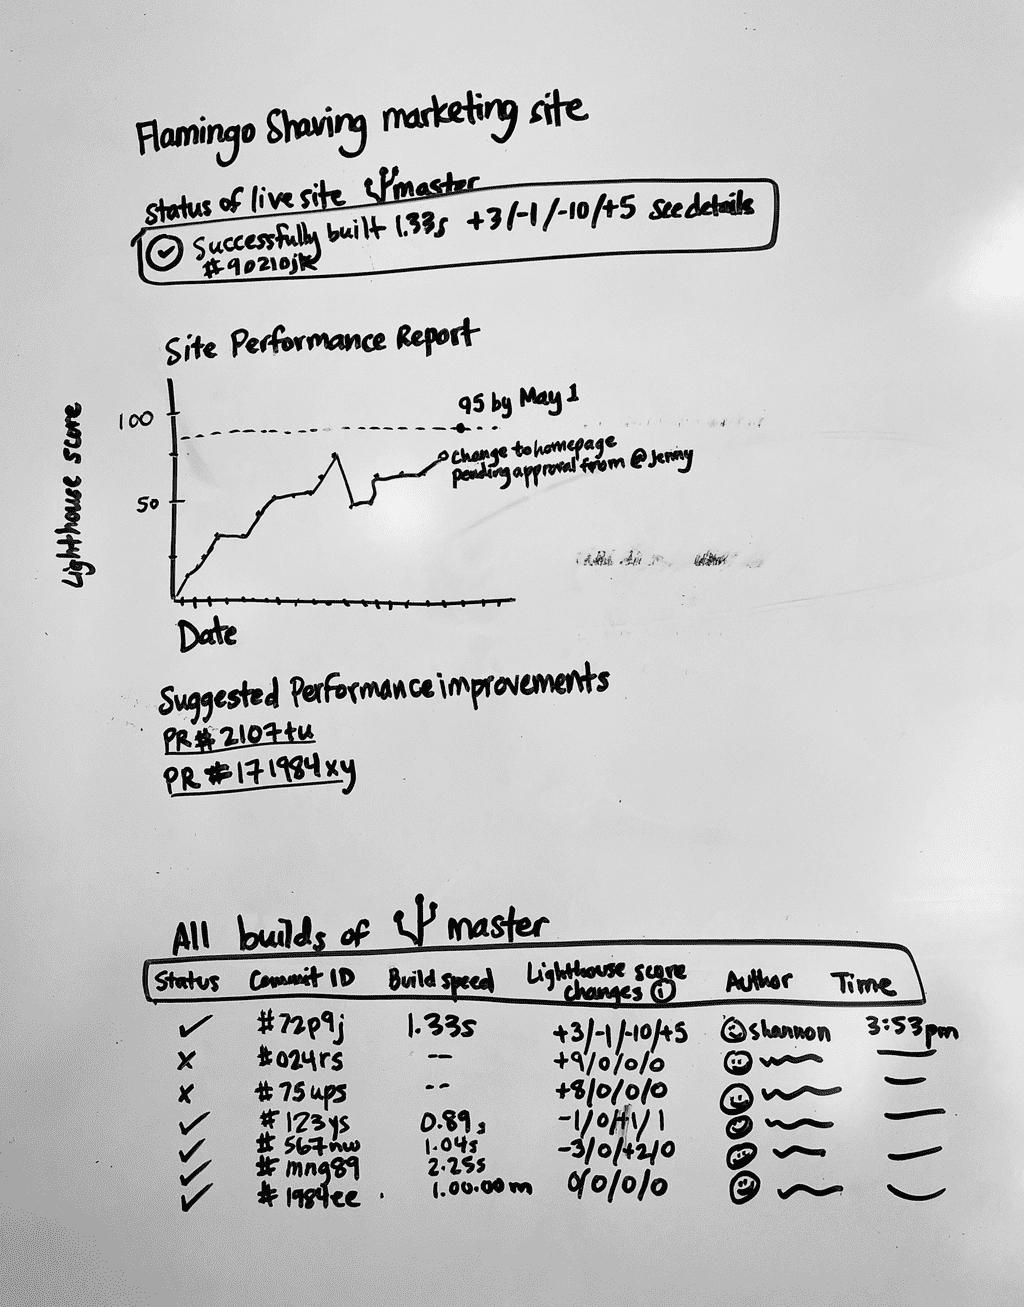 Flamingo Shaving marketing site
Status of live site master
Successfully built 1.33s +3/-1/-10/+5 see details
#90210jk
Site Performance Report
Lighthouse score
100
95 by May 1
change to homepage
pending approval from @Jenny
50
Date
Suggested Performance improvements
PR #2107tu
PR #171984xy
All builds of master
Status Commit ID Build speed Lighthouse score changes i Author Time
✓ #72p9j 1.33s +3/-1/-10/+5 shannon 3:53pm
x #024rs -- +9/0/0/0
x #75ups -- +8/0/0/0
✓ #123ys 0.89s -1/0/+1/1
✓ #567nw 1.04s -3/0/+2/0
✓ #mng89 2.25s
✓ #1984ee 1.00.00m 0/0/0/0